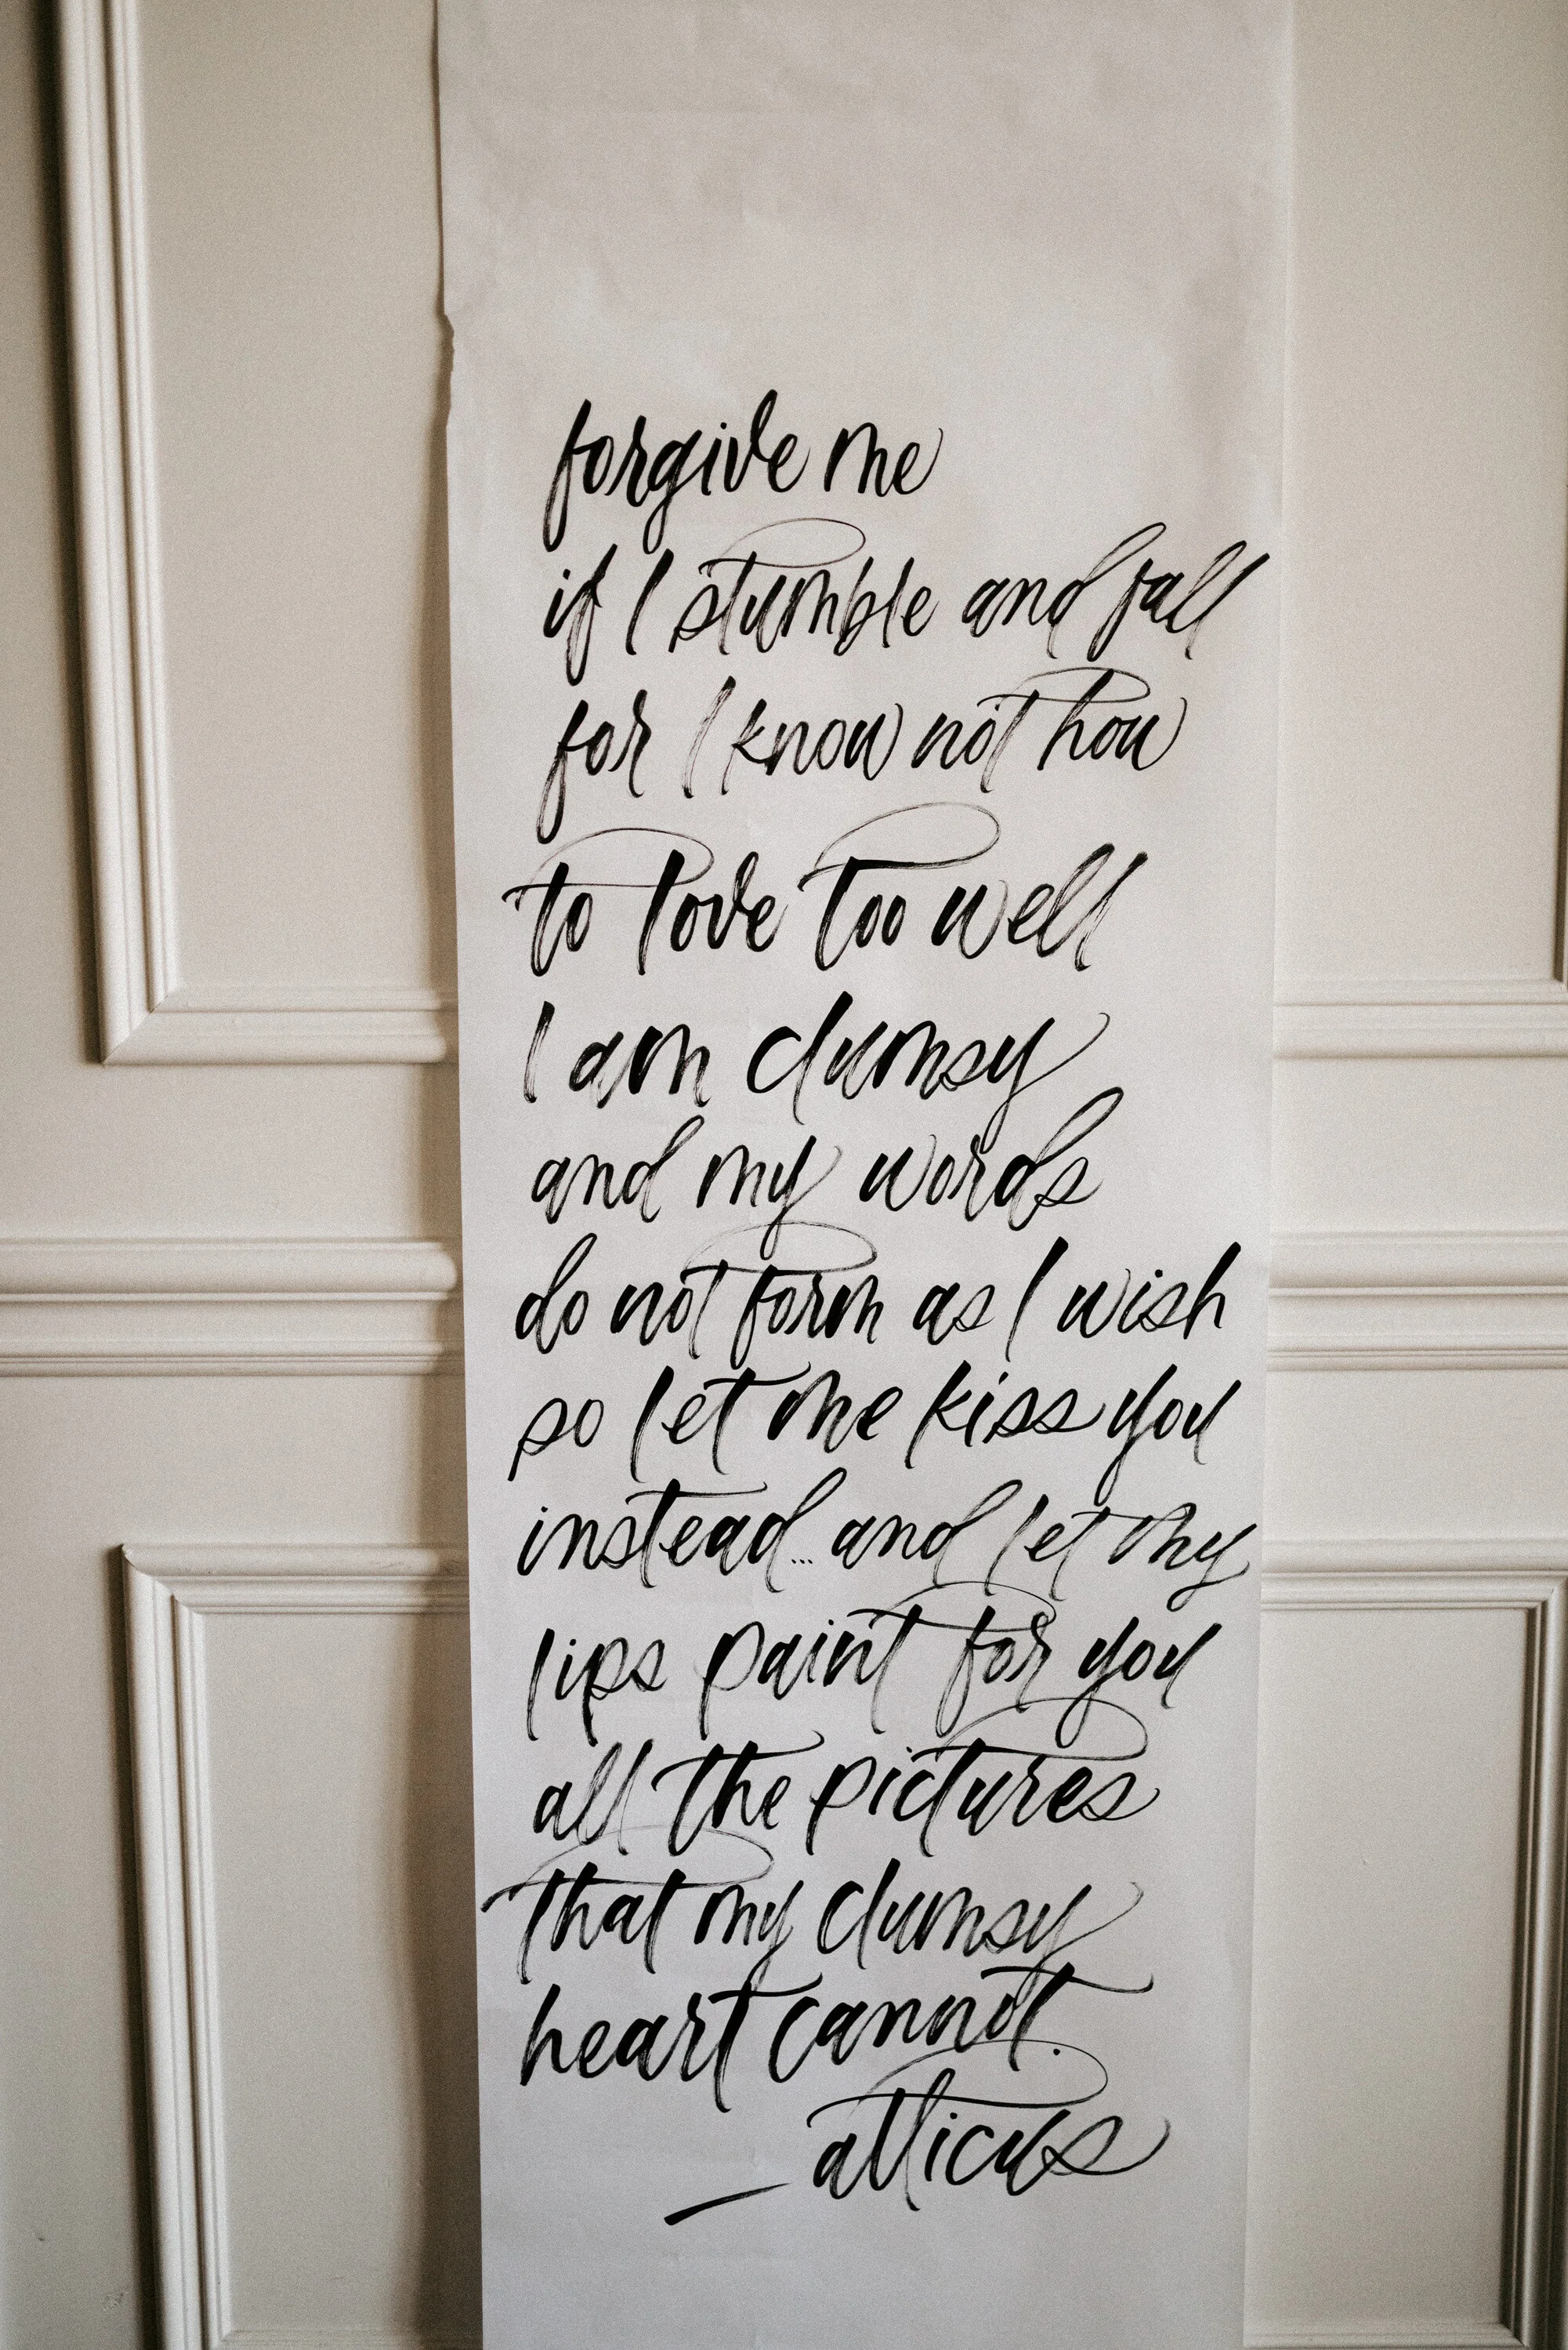 forgive me
if I stumble and fall
for I know not how
to love too well
I am clumsy
and my words
do not form as I wish
so let me kiss you
instead... and let my
lips paint for you
all the pictures
that my clumsy
heart cannot.
— atticus